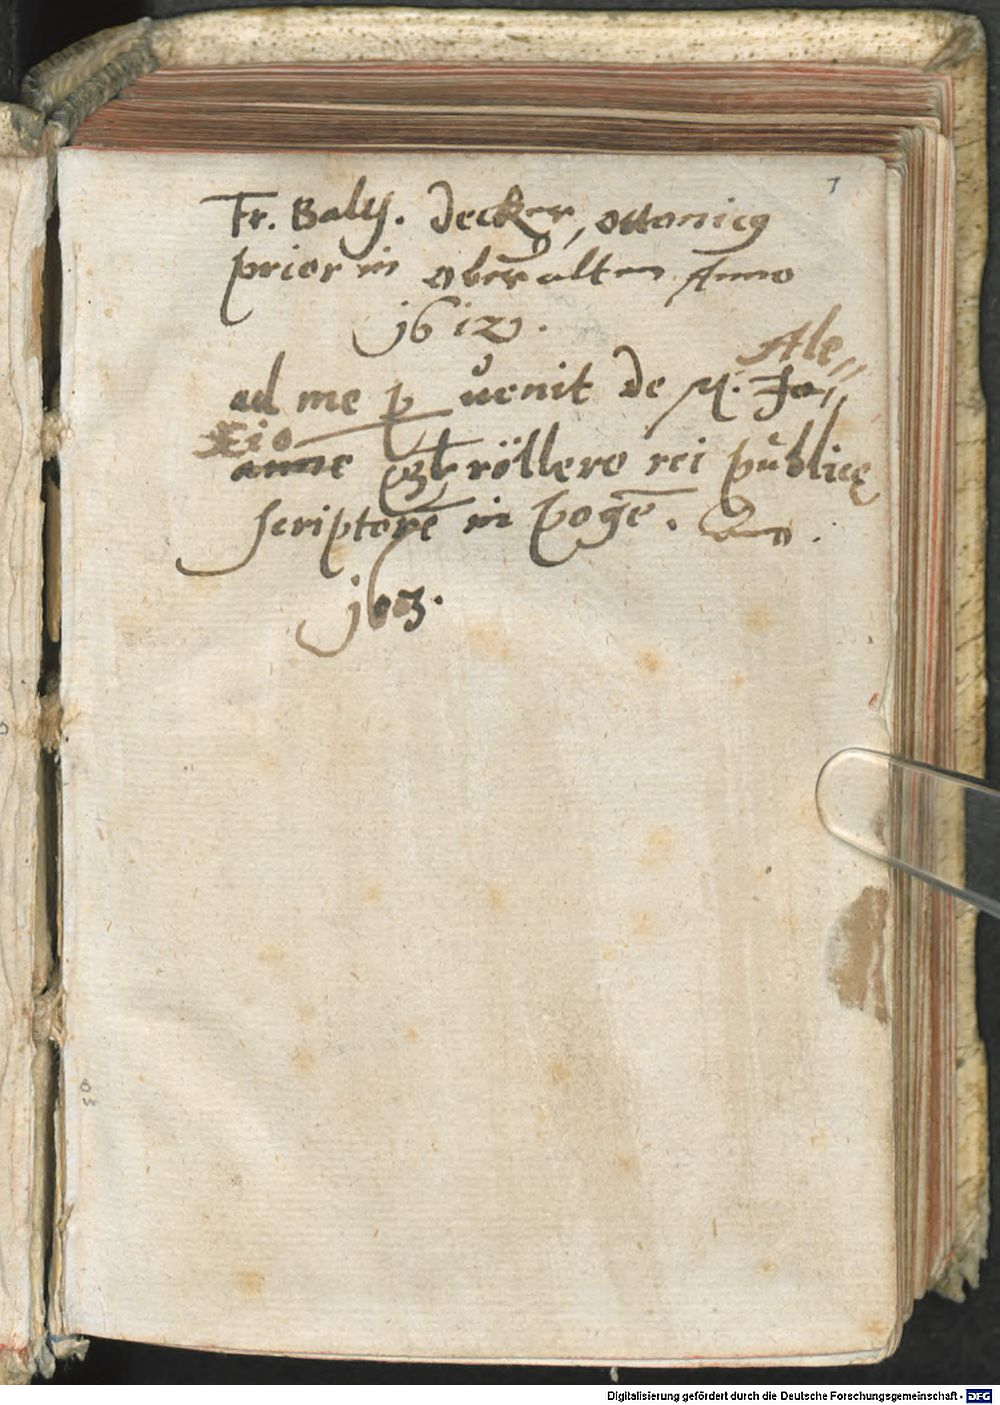 1
Fr. Balth. Decker, Ottonicus
prior in Oberalten Anno
1612.
Ale=
ad me p uenit de M. Jo=
xio
anne Ströllero rei publicę
scriptorē in pogē.
1603.
Digitalisierung gefördert durch die Deutsche Forschungsgemeinschaft - DFG